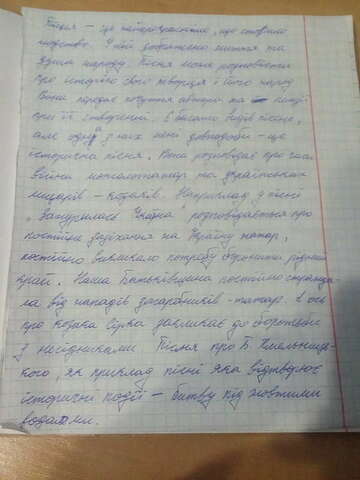 Пісня — це найпрекрасніше, що створило
людство. У ній зображено життя та
душа народу. Пісня може розповісти
про історію свого творця і його народ
Вони передає почуття автора та події
при її створенні. Є багато видів пісень,
але одні з них мені до вподоби — це
історична пісня. Вона розповідає про часи
війни між татар та українських
лицарів — козаків. Наприклад у пісні
„Зажурилась Україна розповідається про
постійне зазіхання на Україну татар,
постійно викликало потребу обороняти рідний
край. Наша Батьківщина постійно стражда-
ла від нападів загарбників – татар. А ось
про козака Сірка закликає до боротьби
з несідниками Пісня про Б. Хмельниць-
кого, як приклад пісні яка відтворює
історичні події — битву під жовтими
водами.